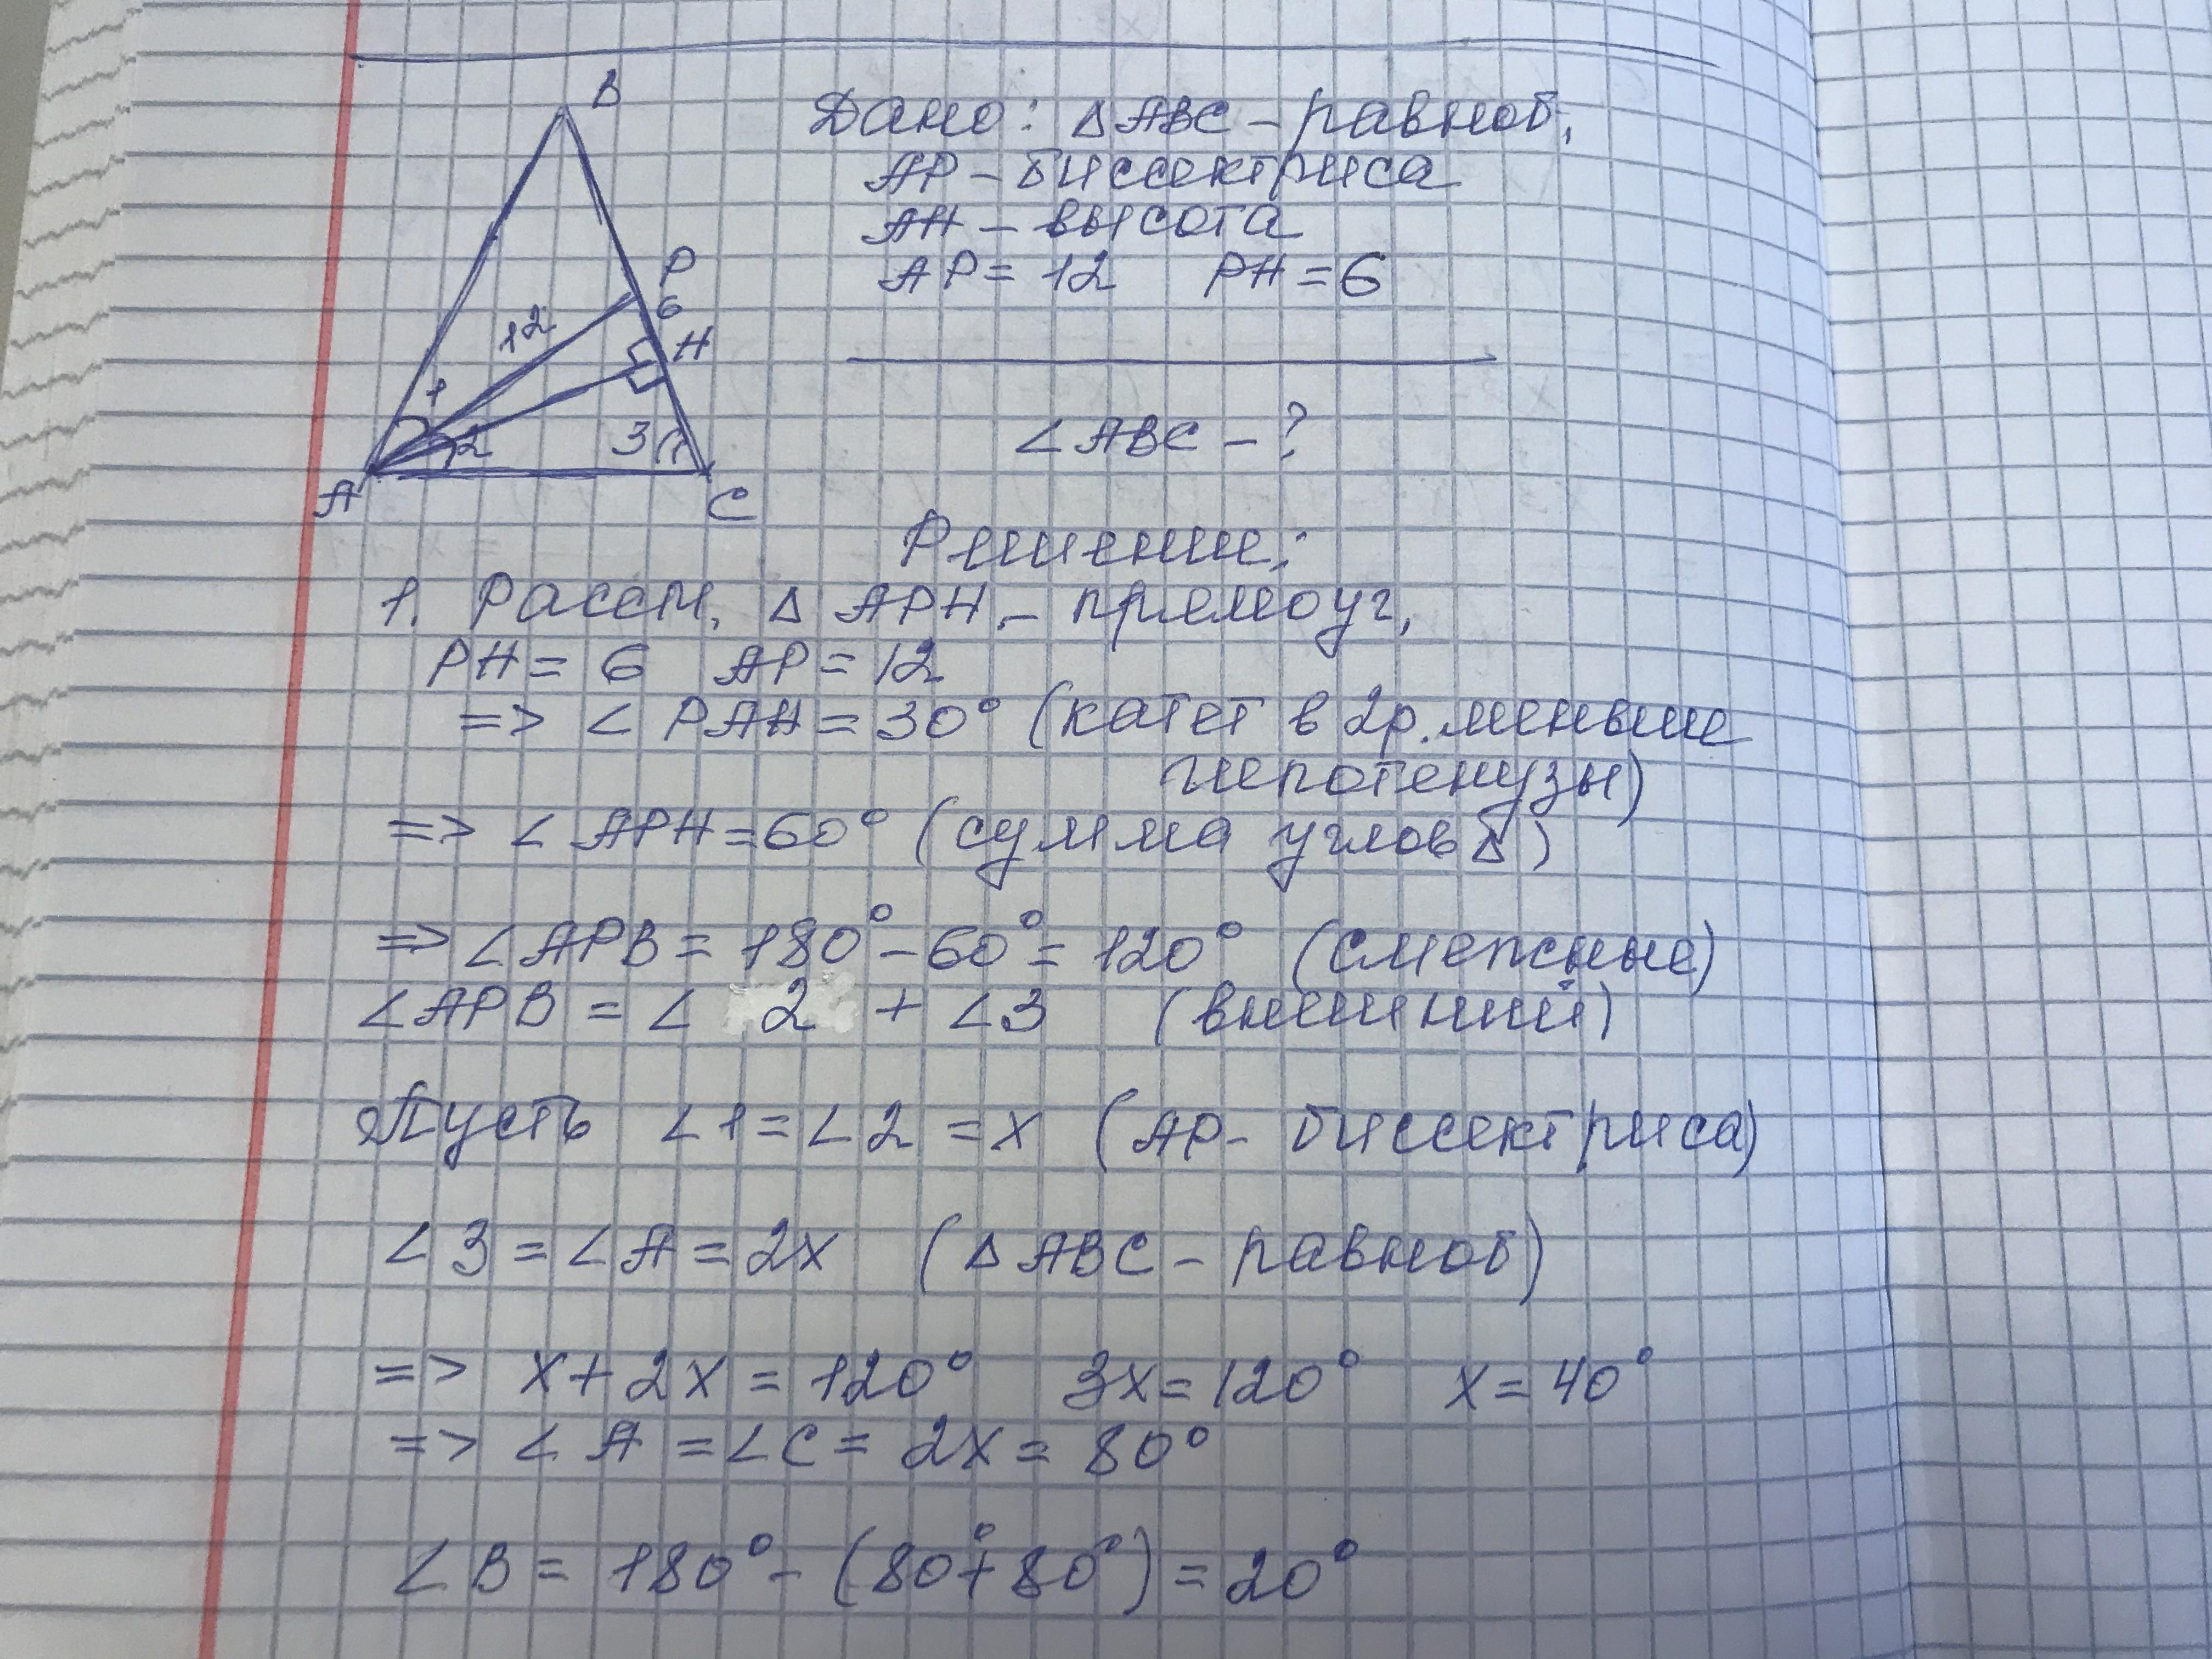 B
P
6
H
12
1
2
3
A
C
Дано: △ABC – равноб,
AP – биссектриса
AH – высота
AP = 12 PH = 6
∠ABC – ?
Решение:
1. Рассм, △ APH – прямоуг,
PH = 6 AP = 12
=> ∠ PAH = 30° (катет в 2р. меньше
гипотенузы)
=> ∠ APH = 60° (сумма углов △)
=> ∠APB = 180° – 60° = 120° (смежные)
∠APB = ∠ 2 + ∠3 (внешний)
Пусть ∠1 = ∠2 = x (AP – биссектриса)
∠3 = ∠A = 2x (△ ABC – равноб)
=> x + 2x = 120° 3x = 120° x = 40°
=> ∠ A = ∠C = 2x = 80°
∠B = 180° – (80° + 80°) = 20°